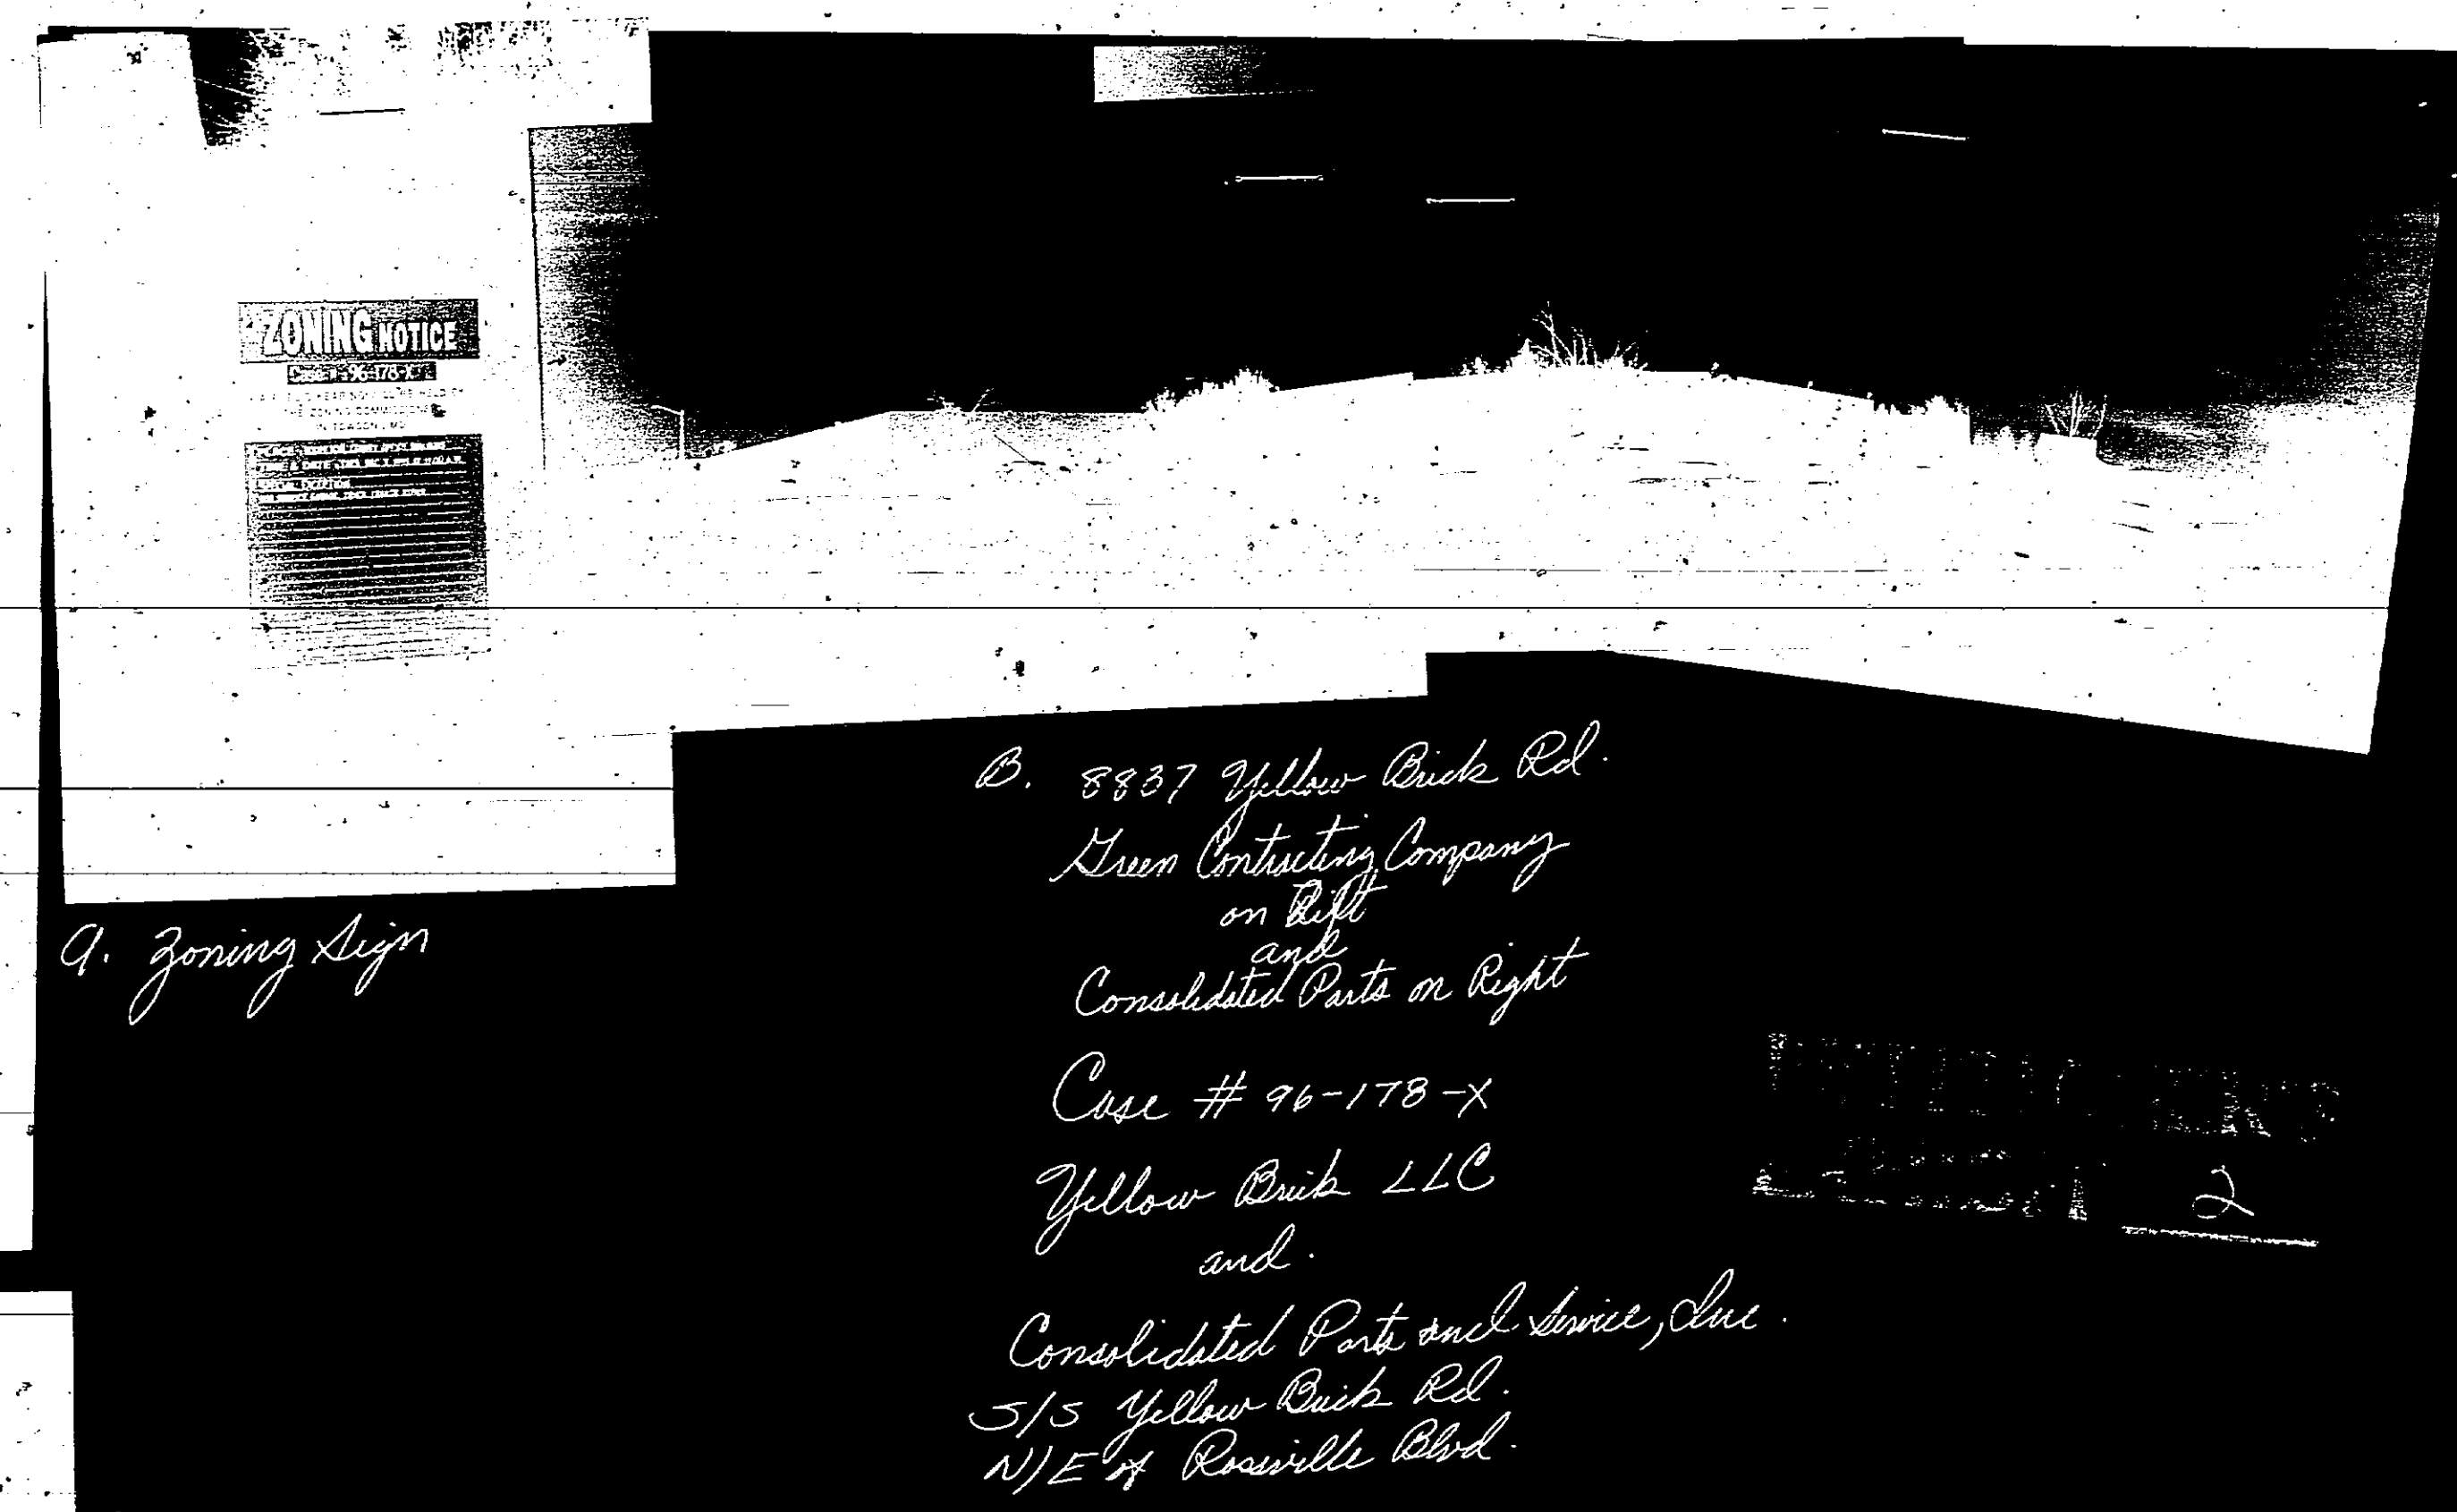 ZONING NOTICE
Case #: 96-178-X
THE ZONING COMMISSIONER
IN TOWSON, MD
A. Zoning Sign
B. 8837 Yellow Brick Rd.
Green Contracting Company
on Left
and
Consolidated Parts on Right
Case # 96-178-X
Yellow Brick LLC
and
Consolidated Parts and Service, Inc.
S/S Yellow Brick Rd.
N/E of Rossville Blvd.
2